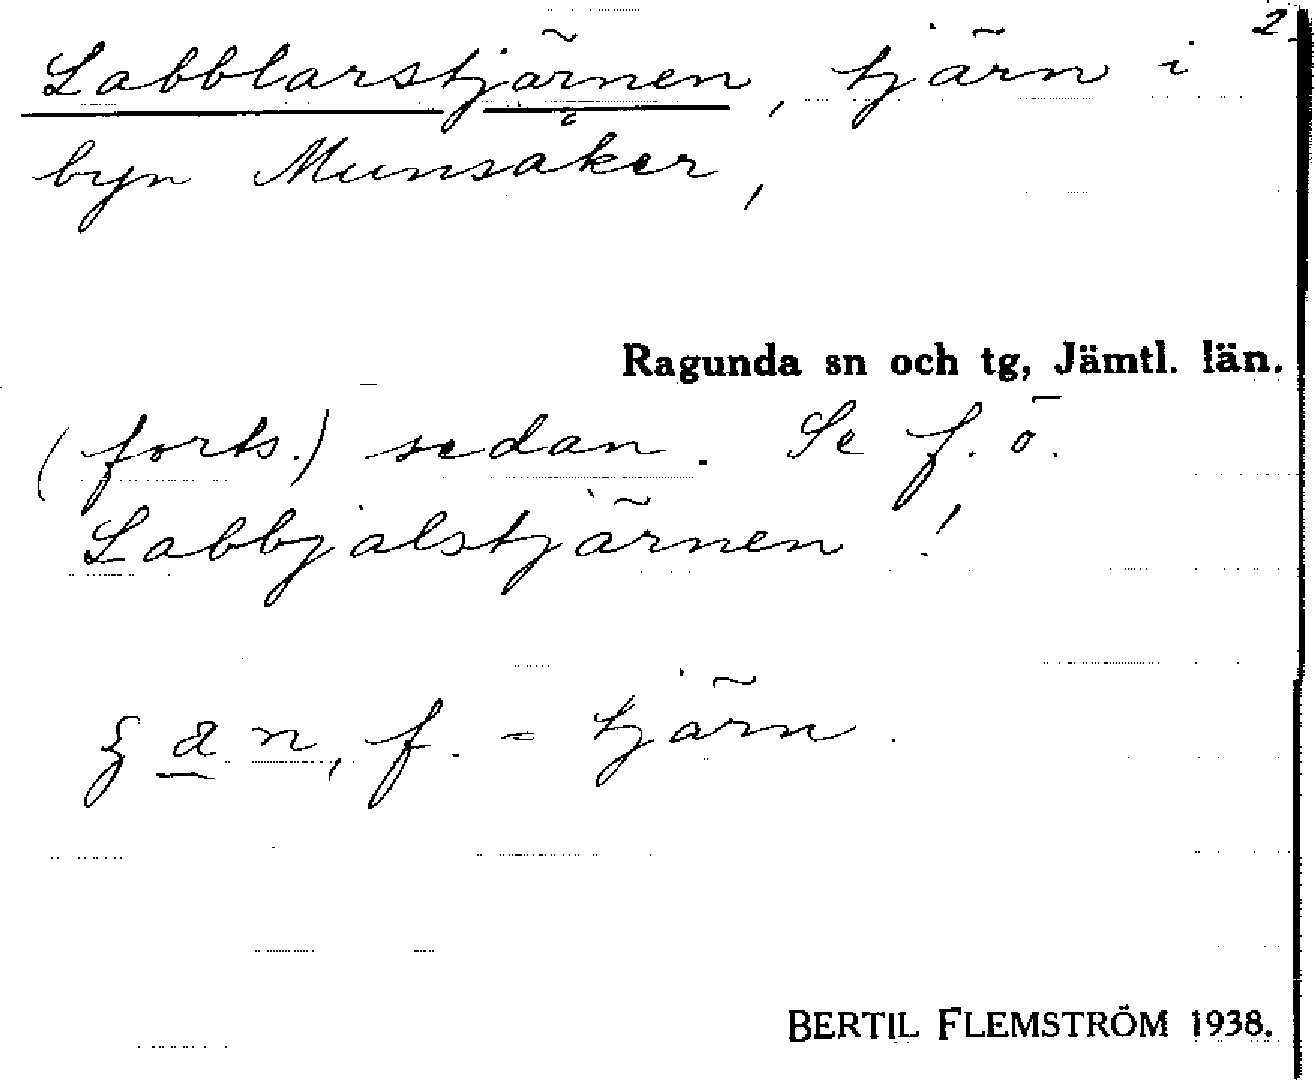 2.
Labblarstjärnen, tjärn i
byn Munsåker,
Ragunda sn och tg, Jämtl. län.
(forts.) sedan. Se f. ö.
Labbjalstjärnen!
f. = tjärn.
BERTIL FLEMSTRÖM 1938.